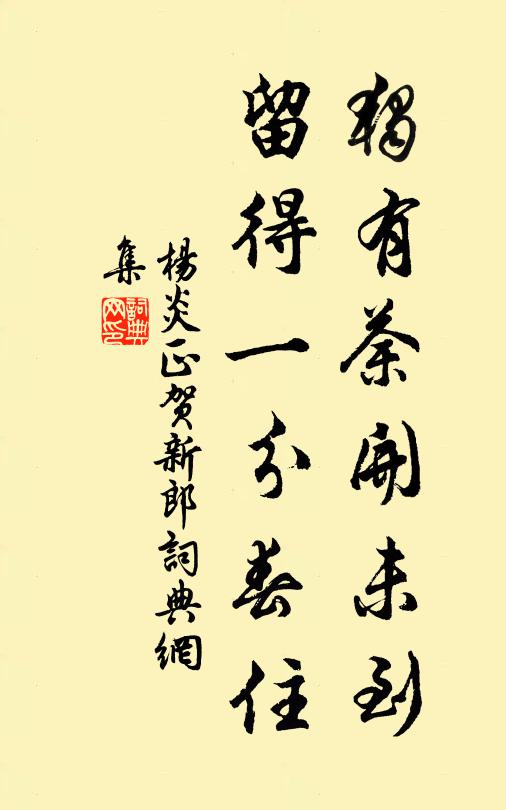 獨有荼開未到
留得一分春住
楊炎正賀新郎詞典網
集
詞典
网印